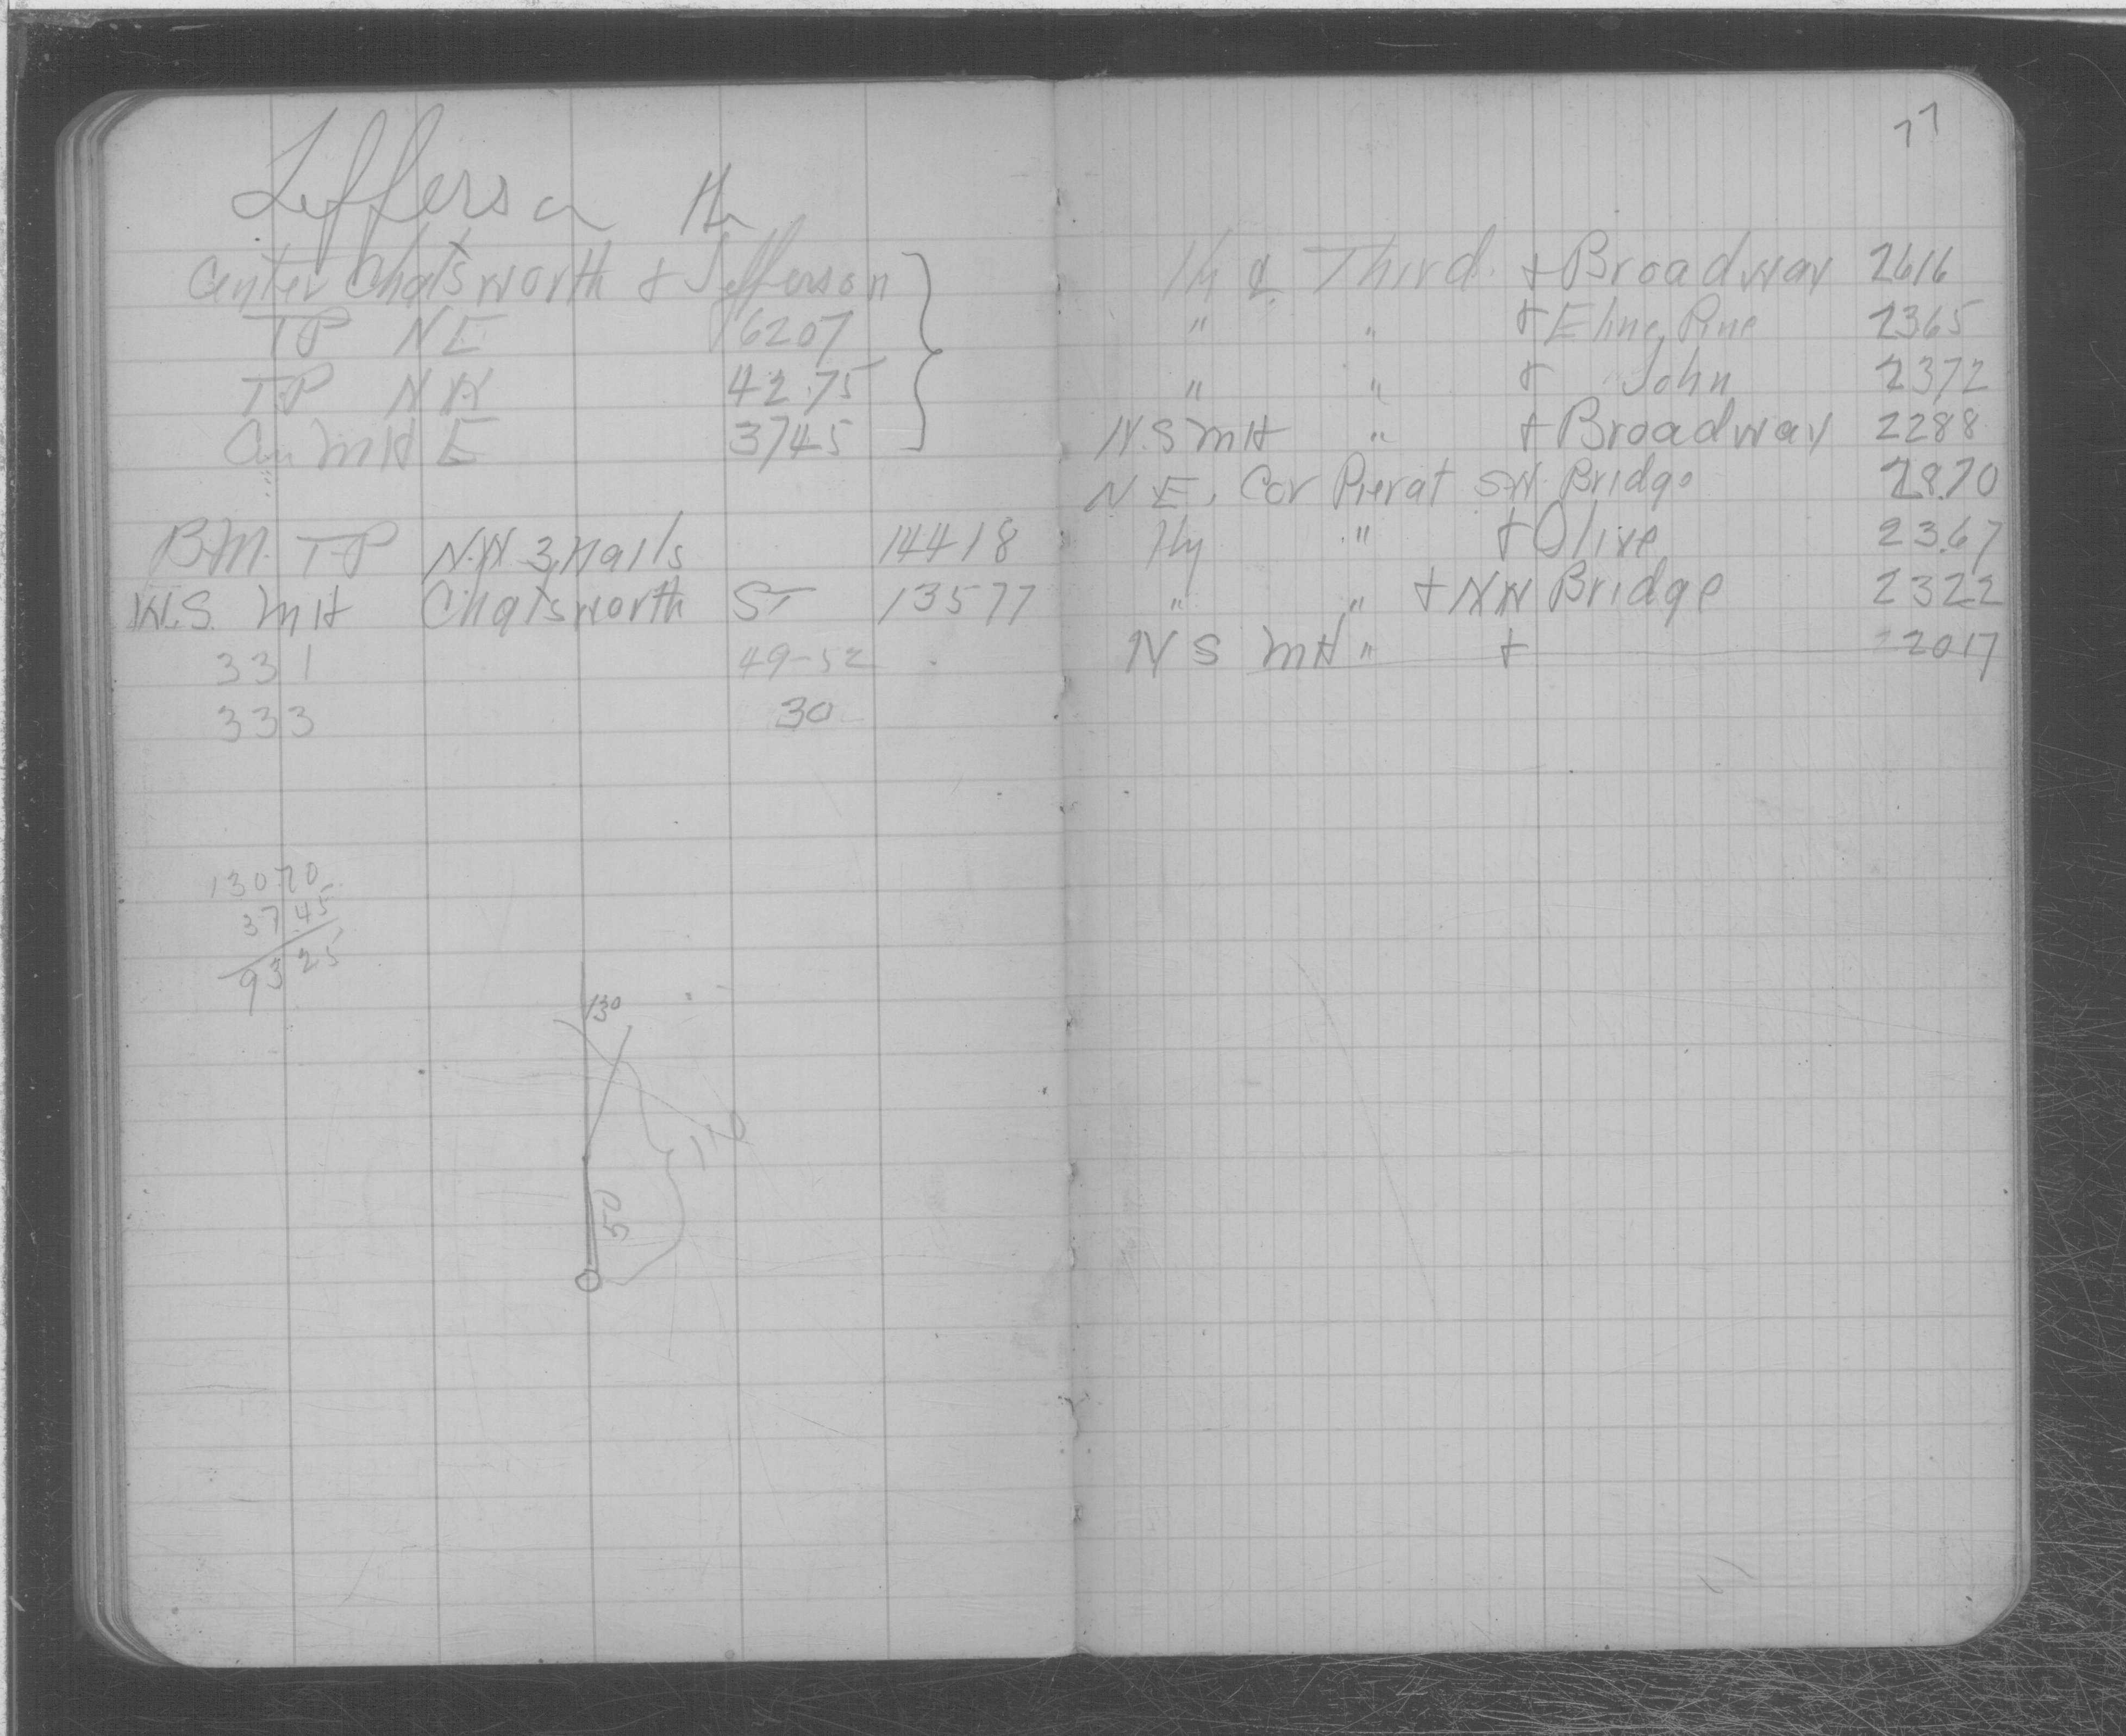 Jefferson Hy
Center Chatsworth + Jefferson
TP NE 6207
TP NW 42.75
Cen MH E 3745
B.M. T-P N.W 3, Nails 14418
W.S. MH Chatsworth ST 13577
331 49-52
333 30
13070
37.45
9325
130
110
50
77
Hy ¢ Third + Broadway 2616
" " + E line Pine 2365
" " + John 2372
N.S MH " + Broadway 2288
N E, Cor Pier at SW. Bridge 28.70
Hy " + Olive 23.67
" " + NW Bridge 2322
N S MH " + 2017